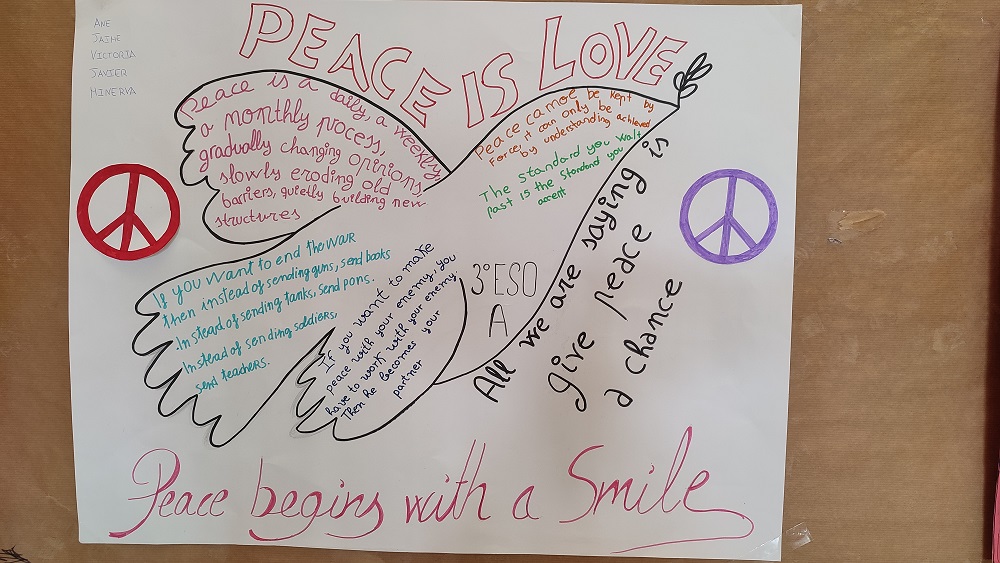 ANE
JAIME
VICTORIA
JAVIER
MINERVA
PEACE IS LOVE
Peace is a daily, a weekly
a monthly process,
gradually changing opinions,
slowly eroding old
barriers, quietly building new
structures
Peace cannoe be kept by
force; it can only be achieved
by understanding
The standard you walt
past is the standard you
accent
If you want to end the war
then instead of sending guns, send books
.Instead of sending tanks, send pens.
Instead of sending soldiers,
send teachers.
If you want to make
peace with your enemy, you
have to work with your enemy.
Then he becomes your
partner
3º ESO
A
All we are saying is
give peace
a chance
Peace begins with a Smile